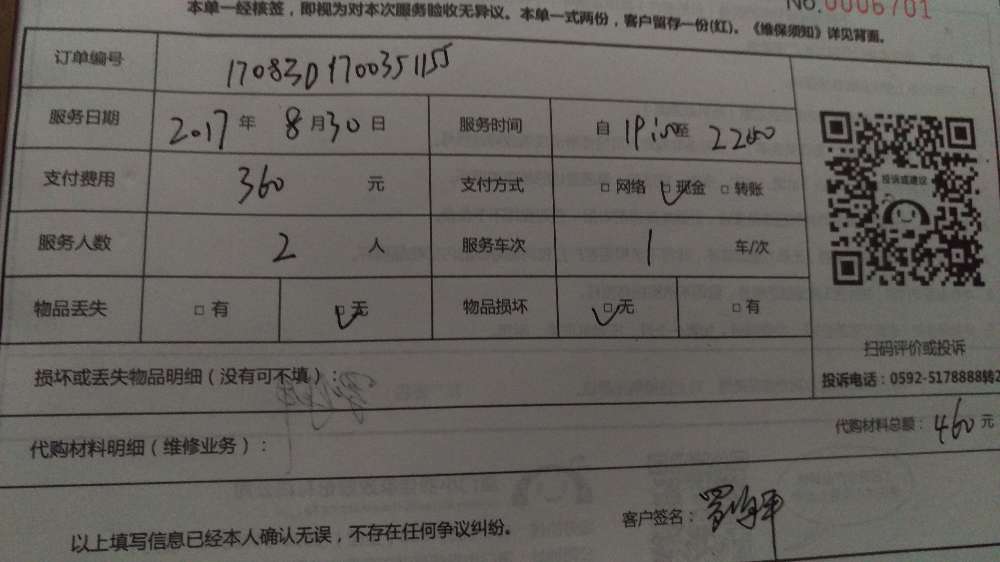 No.0006701
本单一经核签，即视为对本次服务验收无异议。本单一式两份，客户留存一份(红)。《维保须知》详见背面。
订单编号 1708301700351155
服务日期 2017 年 8 月 30 日 服务时间 自 至 2200
支付费用 360 元 支付方式 □ 网络 □ 现金 □ 转账
服务人数 2 人 服务车次 1 车/次
物品丢失 □ 有 □ 无 物品损坏 □ 无 □ 有
投诉或建议
扫码评价或投诉
投诉电话：0592-5178888转2
损坏或丢失物品明细（没有可不填）：
代购材料明细（维修业务）：
代购材料总额：460 元
以上填写信息已经本人确认无误，不存在任何争议纠纷。
客户签名：